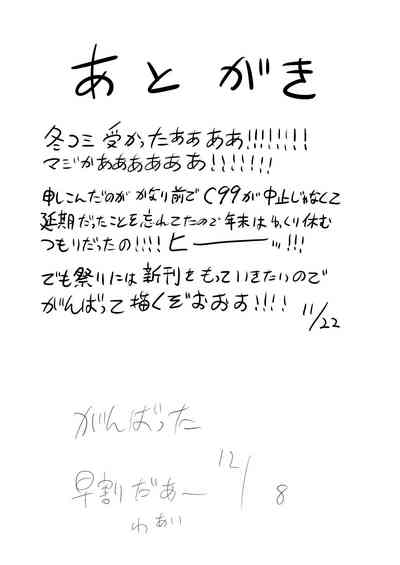 あとがき
冬コミ受かったあああああ!!!!!!!!
マジかああああああ!!!!!!!
申しこんだのが かなり前で C99が中止じゃなくて
延期だったことを忘れてたので年末はゆっくり休む
つもりだったの!!!! ヒーーーッ!!!
でも祭りには新刊をもっていきたいので
がんばって描くぞおおお!!!! 11/22
がんばった
早割だぁ〜 12/8
わぁい